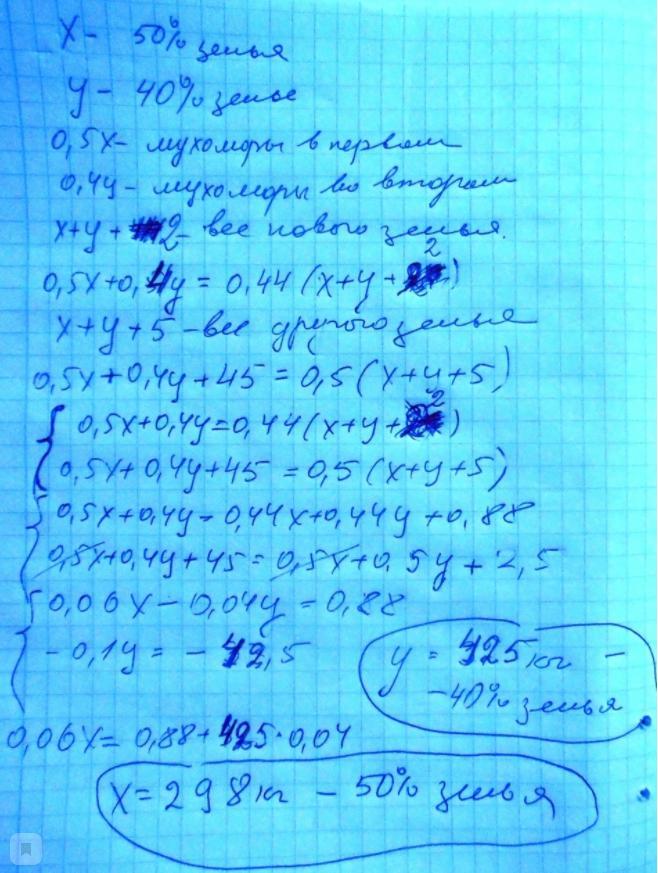 X – 50% зелья
y – 40% зелье
0,5x – мухоморы в первом
0,4y – мухоморы во втором
x+y+2 – вес нового зелья.
0,5x+0,4y = 0,44(x+y+2)
x+y+5 – вес другого зелья
0,5x+0,4y+45 = 0,5(x+y+5)
0,5x+0,4y=0,44(x+y+2)
0,5x+0,4y+45 = 0,5(x+y+5)
0,5x+0,4y=0,44x+0,44y+0,88
0,5x+0,4y+45=0,5x+0,5y+2,5
0,06x – 0,04y = 0,88
-0,1y = -42,5
y = 425кг –
–40% зелья
0,06x = 0,88+425·0,04
x=298кг – 50% зелья